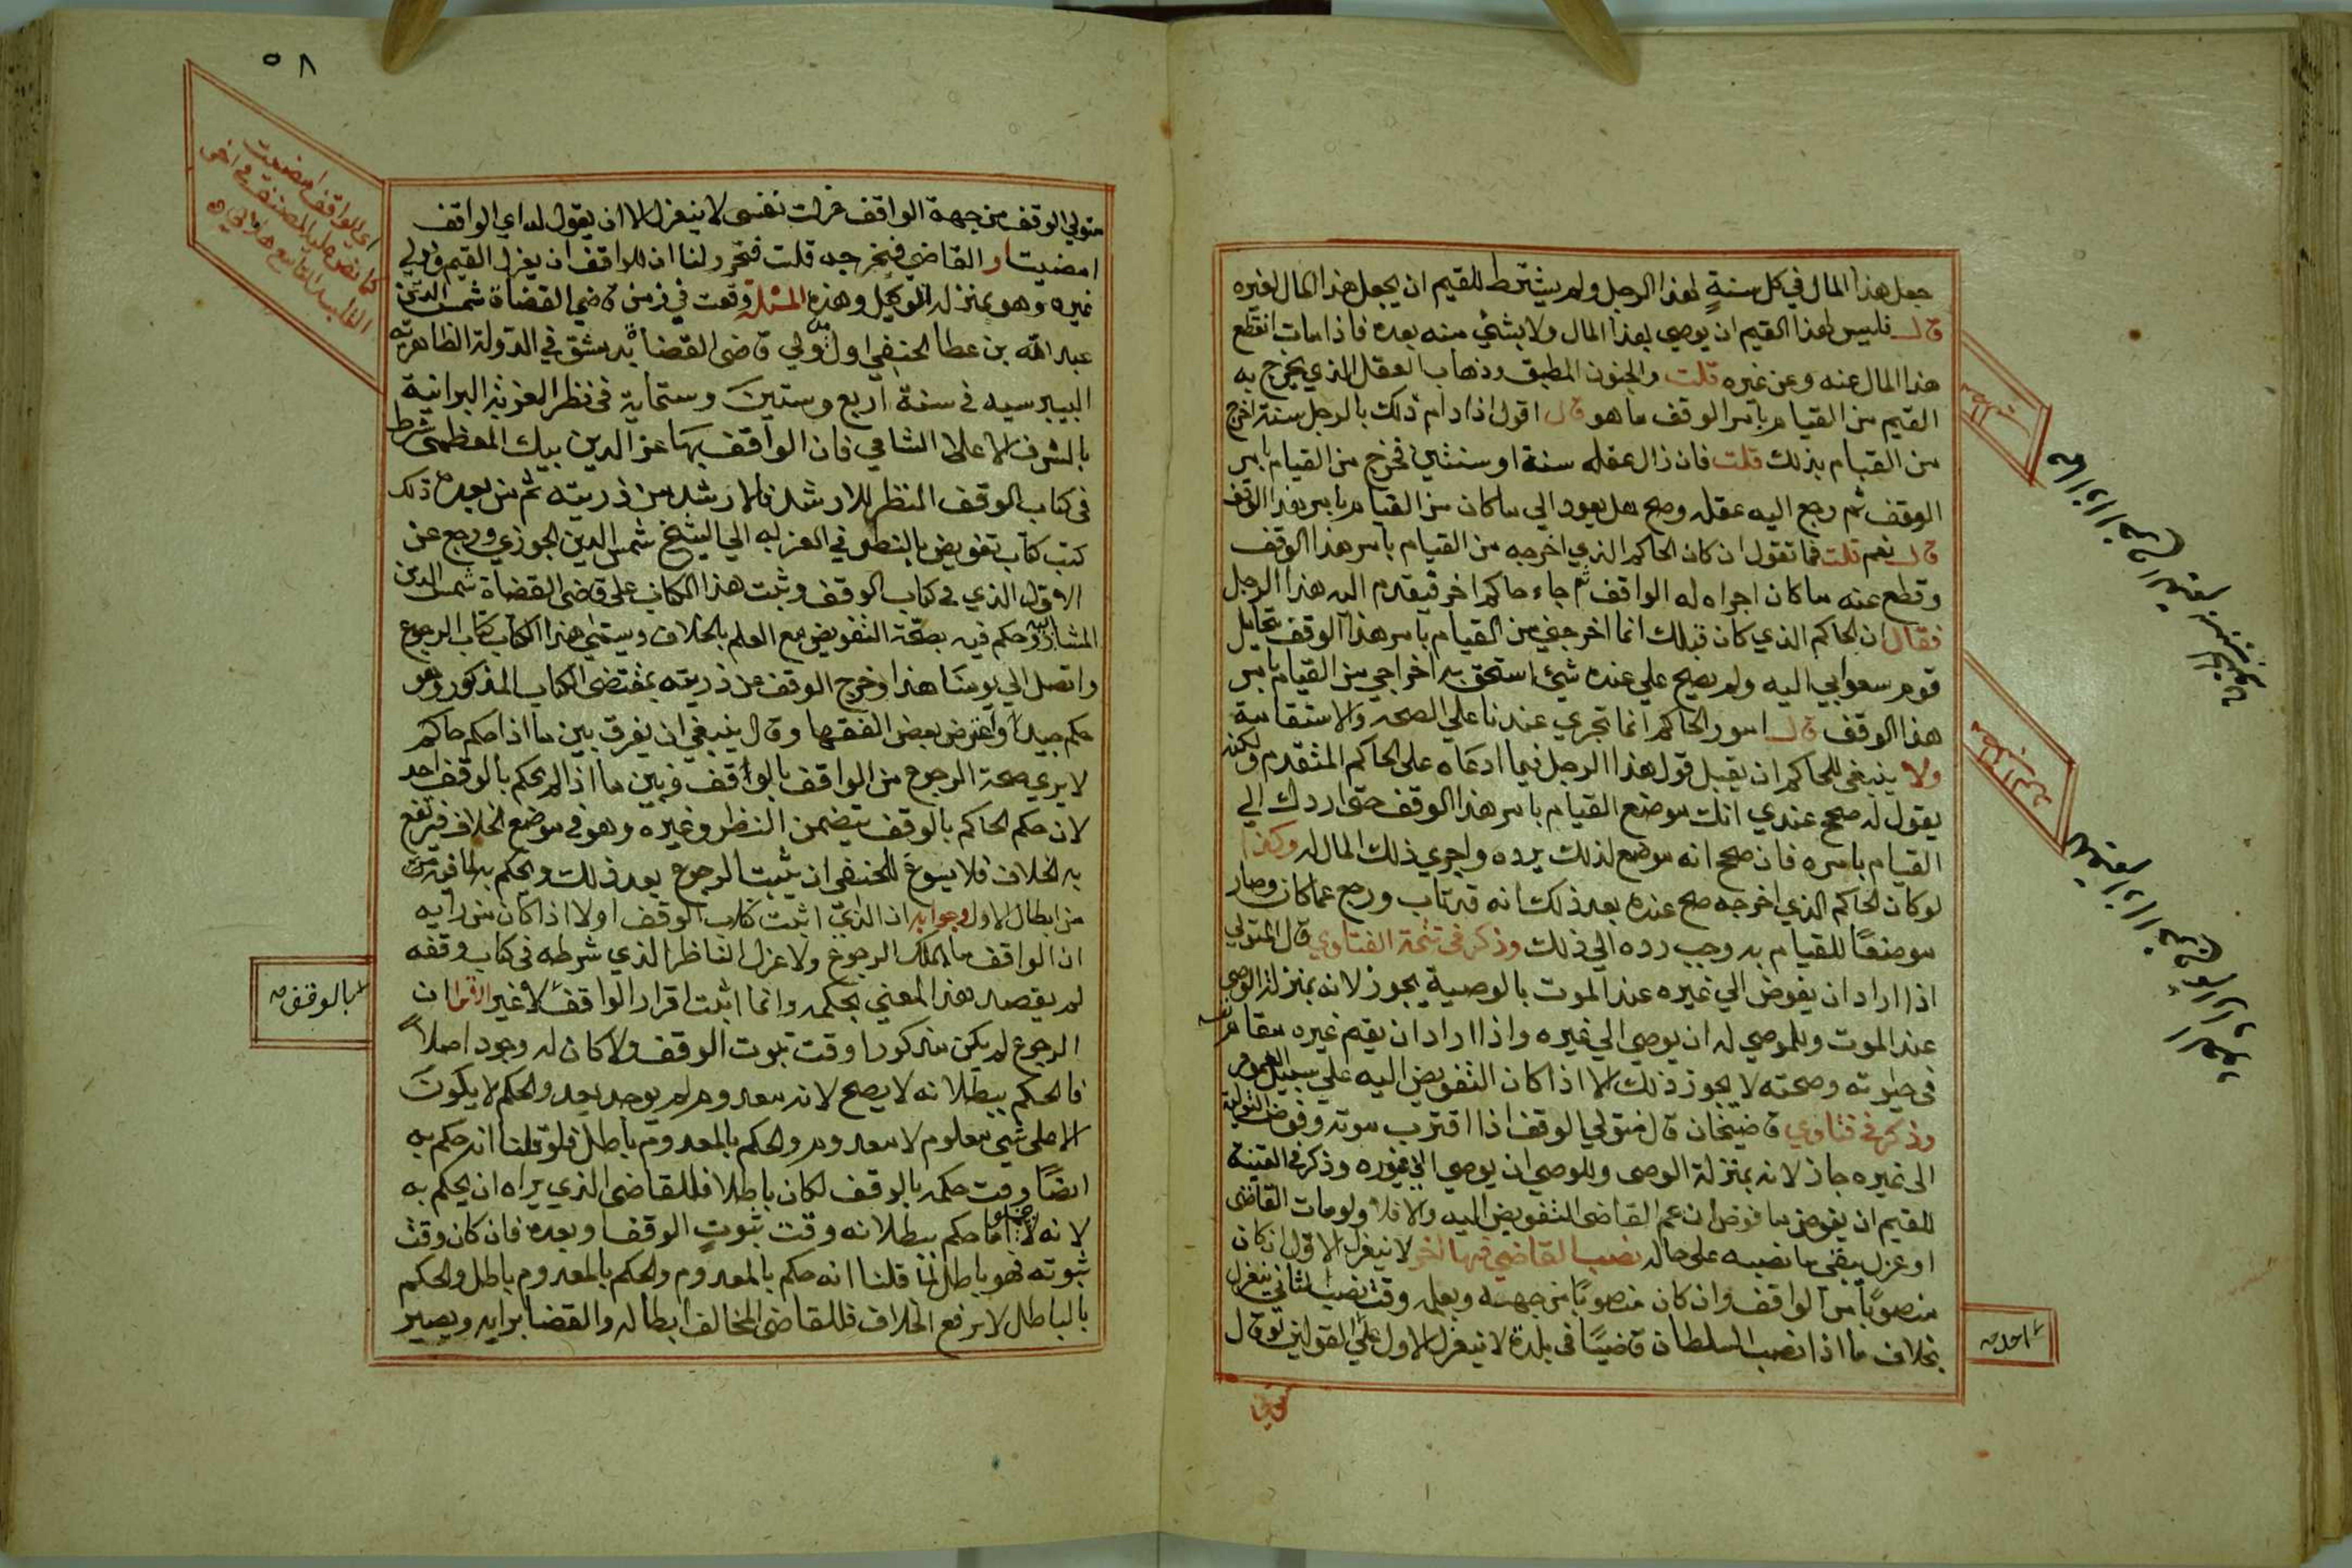 جعل هذا المال في كل سنة لهذا الرجل ولم يشترط للقيم ان يجعل هذا المال لغيره
قال فليس لهذا القيم ان يوصي بهذا المال ولا بشئ منه بعده فاذا مات انقطع
هذا المال عنه وعن غيره قلت والجنون المطبق وذهاب العقل الذي يخرج به
القيم من القيام بامر الوقف ما هو قال اقول اذا دام ذلك بالرجل سنة اخرج
من القيام بذلك قلت فان زال عقله سنة او سنتين فخرج من القيام بامر
الوقف ثم رجع اليه عقله وصح هل يعود الي ما كان من القيام بامر هذا الوقف
قال نعم قلت فما تقول ان كان الحاكم الذي اخرجه من القيام بامر هذا الوقف
وقطع عنه ما كان اجراه له الواقف ثم جاء حاكم اخر فيقدم اليه هذا الرجل
فقال ان الحاكم الذي كان قبلك انما اخرجني من القيام بامر هذا الوقف بتحامل
قوم سعوا بي اليه ولم يصح علي عنده شئ استحق به اخراجي من القيام بامر
هذا الوقف قال امور الحاكم انما تجري عندنا علي الصحة والاستقامة
ولا ينبغي للحاكم ان يقبل قول هذا الرجل فيما ادعاه على الحاكم المتقدم ولكنه
يقول له صحح عندي انك موضع القيام بامر هذا الوقف حتى اردك الي
القيام بامره فان صحح انه موضع لذلك يرده واجري ذلك المال له وكذا
لو كان الحاكم الذي اخرجه صح عنده بعد ذلك انه قد تاب ورجع عما كان وصار
موضعًا للقيام به وجب رده الي ذلك وذكر في تتمة الفتاوي قال المتولي
اذا اراد ان يفوض الي غيره عند الموت بالوصية يجوز لانه بمنزلة الوصي
عند الموت وللموصي له ان يوصي الي غيره واذا اراد ان يقيم غيره مقام نفسه
في حيوته وصحته لا يجوز ذلك الا اذا كان التفويض اليه علي سبيل العموم
وذكر في فتاوي قاضيخان قال متولي الوقف اذا اقترب موته وفوض التولية
الى غيره جاز لانه بمنزلة الوصي وللوصي ان يوصي الي غيره وذكر في القنية
للقيم ان يفوض ما فوض ان عمم القاضي التفويض اليه والا فلا ولو مات القاضي
او عزل يبقى ما نصبه على حاله نصب القاضي قيما اخر لا ينعزل الاول ان كان
منصوبًا من الواقف وان كان منصوبًا من جهته وبعلمه وقت نصب الثاني ينعزل
بخلاف ما اذا نصب السلطان قاضيًا في بلدة لا ينعزل الاول علي القولين لو قال
متولي
احد صح
٥٨
متولي الوقف من جهة الواقف عزلت نفسي لا ينعزل الا ان يقول له اي الواقف
امضيت او القاضي فيخرجه قلت فتحرر لنا ان للواقف ان يعزل القيم ويولي
غيره وهو بمنزلة الوكيل وهذه المسئلة وقعت في زمن قاضي القضاة شمس الدين
عبد الله بن عطا الحنفي اول من ولي قاضي القضاة بدمشق في الدولة الظاهرية
البيبرسيه في سنة اربع وستين وستماية في نظر العزية البرانية
بالشرف الاعلا الشامي فان الواقف بها عز الدين بيك المعظمي شرط
في كتاب الوقف النظر للارشد فالارشد من ذريته ثم من بعده ذلك
كتب كتاب تفويض بالنظر في العزية الي الشيخ شمس الدين الجوزي ورجع عن
الاول الذي في كتاب الوقف وثبت هذا الكتاب على قاضي القضاة شمس الدين
المشار اليه وحكم فيه بصحة التفويض مع العلم بالخلاف ويسمي هذا الكتاب كتاب الرجوع
واتصل الي يومنا هذا وخرج الوقف عن ذريته بمقتضى الكتاب المذكور وهو
حكم جيد واعترض بعض الفقها وقال ينبغي ان يفرق بين ما اذا حكم حاكم
لا يرى صحة الرجوع من الواقف بالواقف وبين ما اذا لم يحكم بالوقف احد
لان حكم الحاكم بالوقف يتضمن النظر وغيره وهو في موضع الخلاف فيرتفع
به الخلاف فلا يسوغ للحنفي ان يثبت الرجوع بعد ذلك ويحكم به لما فيه
من ابطال الاول وجوابه ان الذي اثبت كتاب الوقف اولا اذا كان من رايه
ان الواقف ما يملك الرجوع ولا عزل الناظر الذي شرطه في كتاب وقفه
لم يقصد هذا المعني بحكمه وانما اثبت اقرار الواقف لا غير ان
الرجوع لم يكن مذكورا وقت ثبوت الوقف ولا كان له وجود اصلا
فالحكم ببطلانه لا يصح لانه معدوم لم يوجد بعد والحكم لا يكون
الا على شئ معلوم لا معدوم والحكم بالمعدوم باطل فلو قلنا انه حكم به
ايضًا وقت حكمه بالوقف لكان باطلا فللقاضي الذي يراه ان يحكم به
لانه لا يخلو اما حكم ببطلانه وقت ثبوت الوقف او بعده فان كان وقت
ثبوته فهو باطل لما قلنا انه حكم بالمعدوم والحكم بالمعدوم باطل والحكم
بالباطل لا يرفع الخلاف فللقاضي المخالف ابطاله والقضا برايه ويصير
بالوقف صح